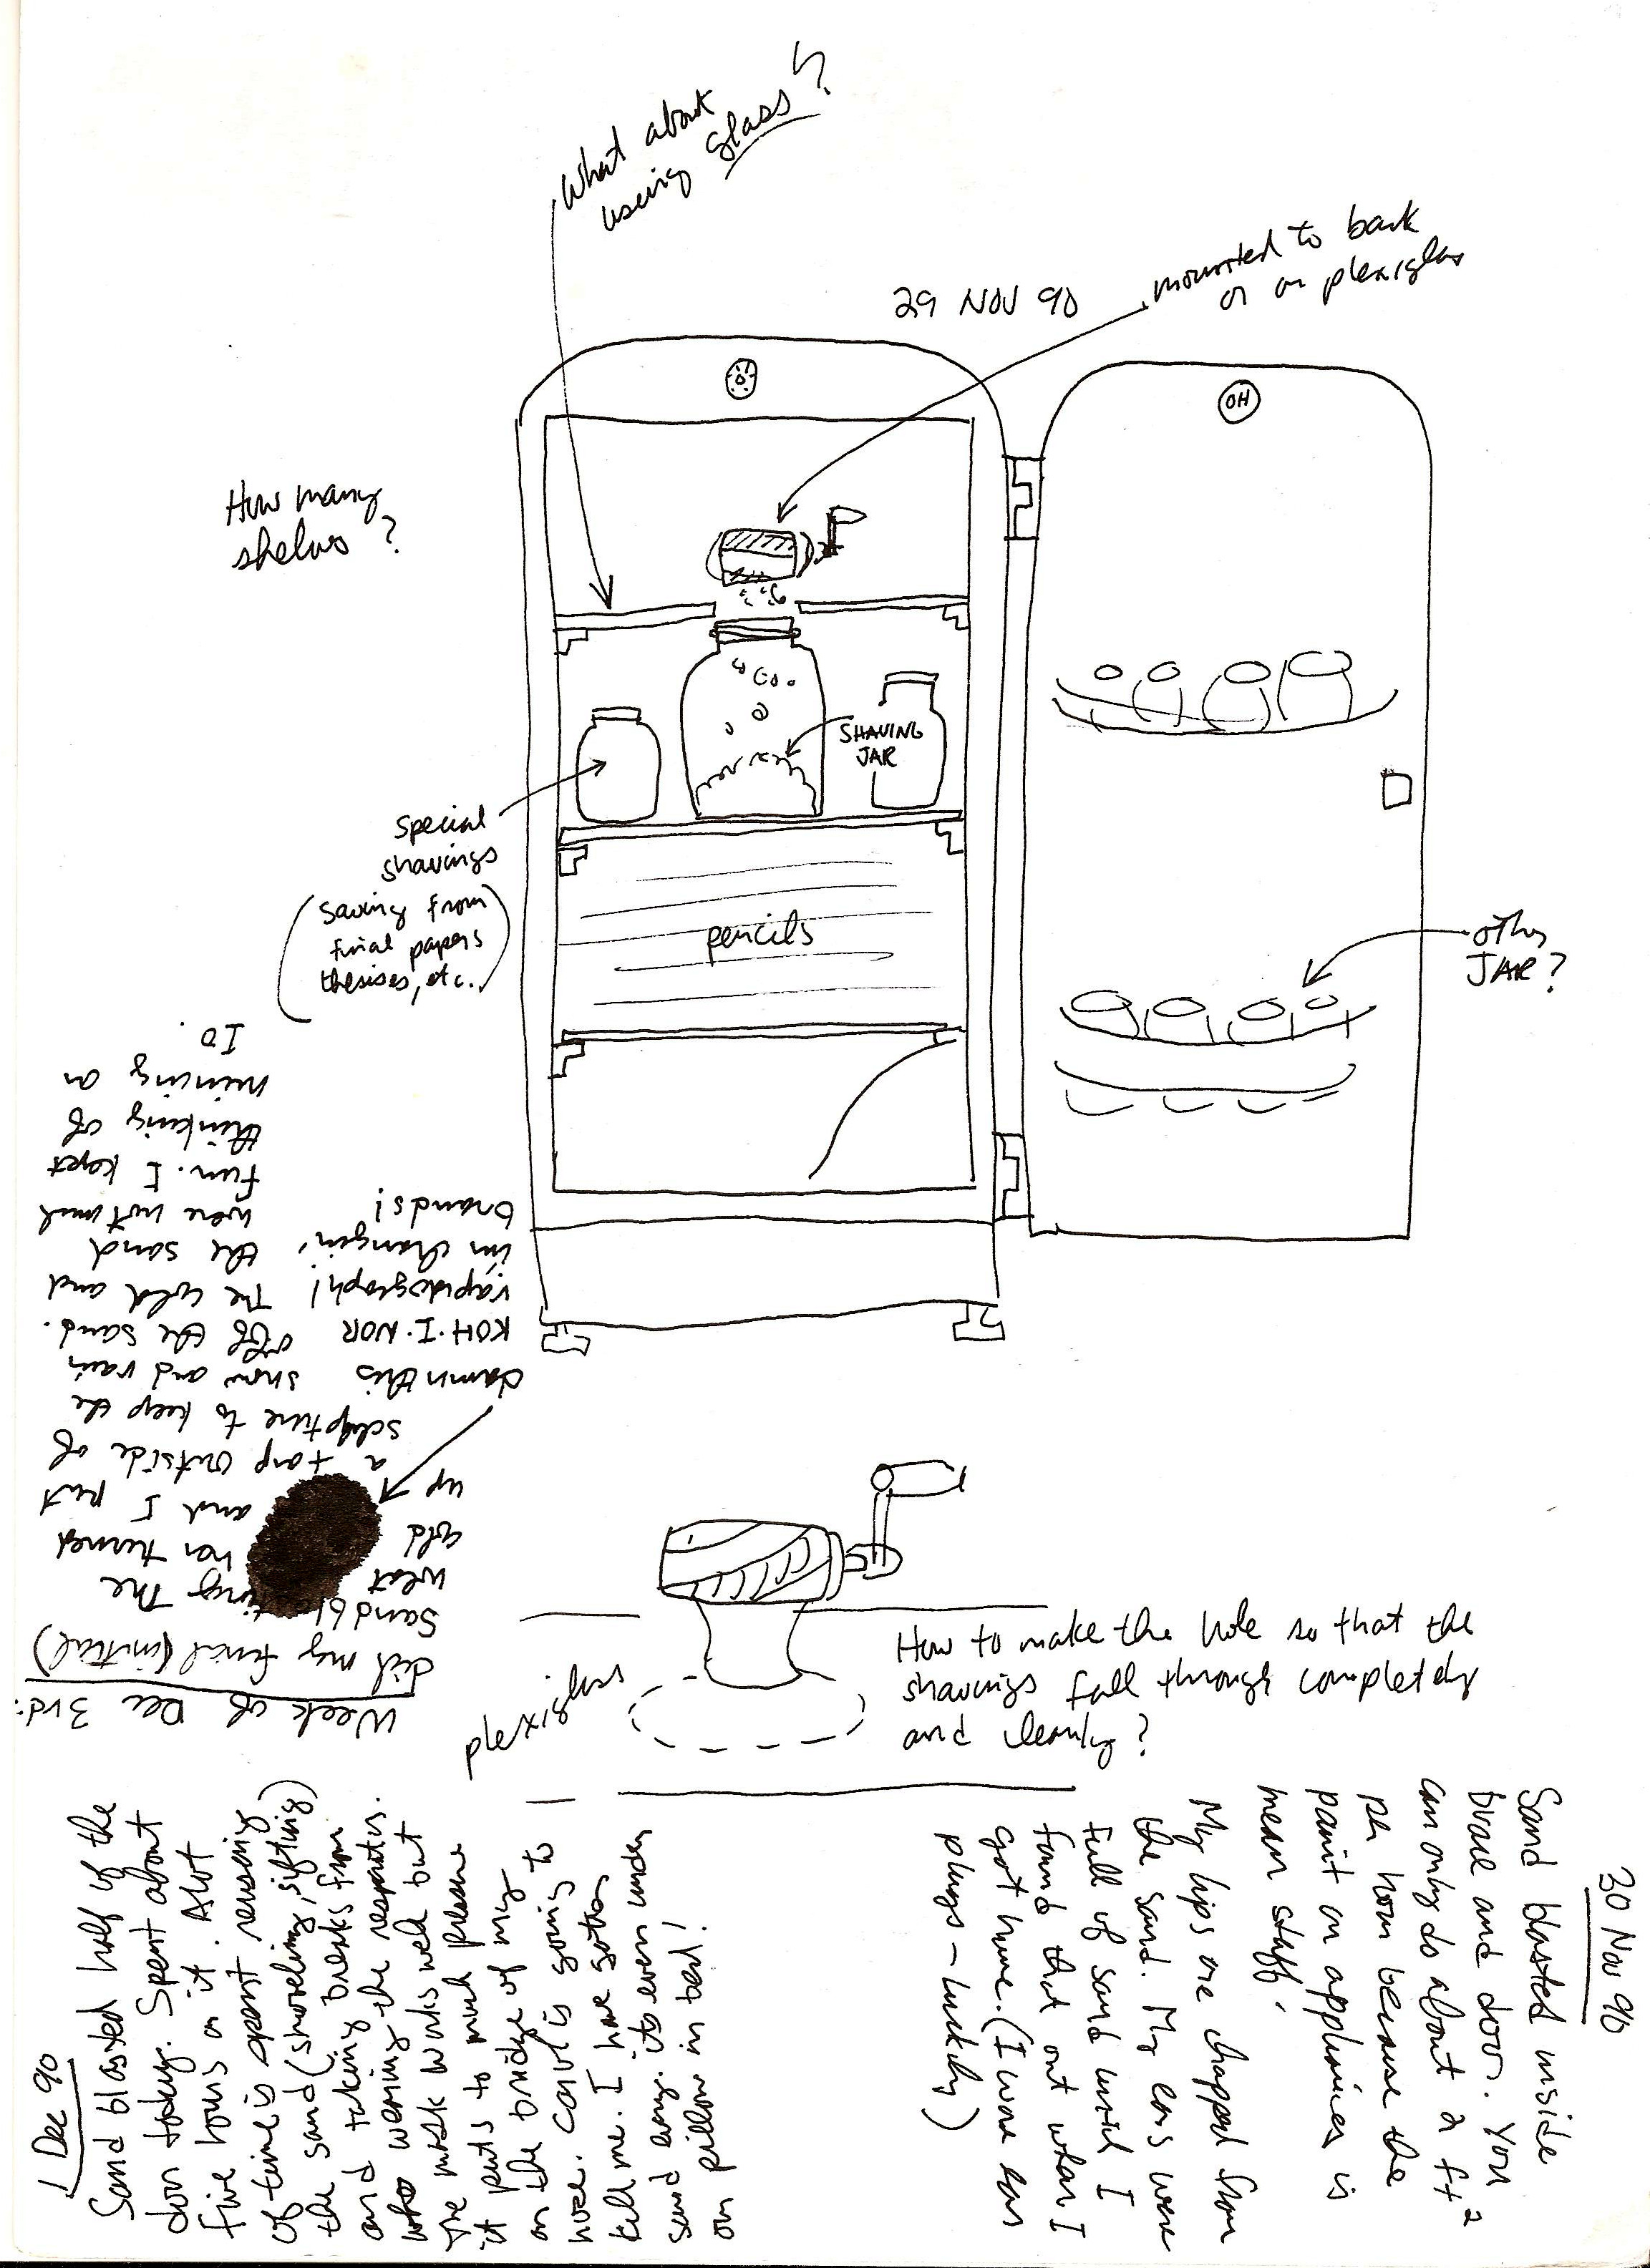 What about
using glass?
29 NOV 90
mounted to back
or on plexiglas
OH
How many
shelves?
SHAVING
JAR
special
shavings
(saving from
final papers
thesises, etc.)
pencils
other
JAR?
damn this
KOH·I·NOR
rapidograph!
i'm changin'
brands!
plexiglass
How to make the hole so that the
shavings fall through completely
and cleanly?
30 Nov 90
Sand blasted inside
and door. You
can only do about 2 ft²
per hour because the
paint on appliances is
mean stuff.
My lips are chapped from
the sand. My ears were
full of sand until I
found that out when I
got home. (I wore ear
plugs - luckily)
1 Dec 90
Sand blasted half of the
door today. Spent about
five hours on it. Alot
of time is spent reusing
the sand (shoveling, sifting)
and taking breaks from
wearing the respirator.
The mask works well but
it puts to much pressure
on the bridge of my
nose. Carl is going to
kill me. I have gotten
sand every. its even under
our pillow in bed!
Week of Dec 3rd:
did my final (initial)
Sandblasting The
weat has turned
cold and I put
up a tarp outside of
sculpture to keep the
snow and rain
off the sand.
The cold and
the sand
were not much
fun. I kept
thinking of
mining on
IO.